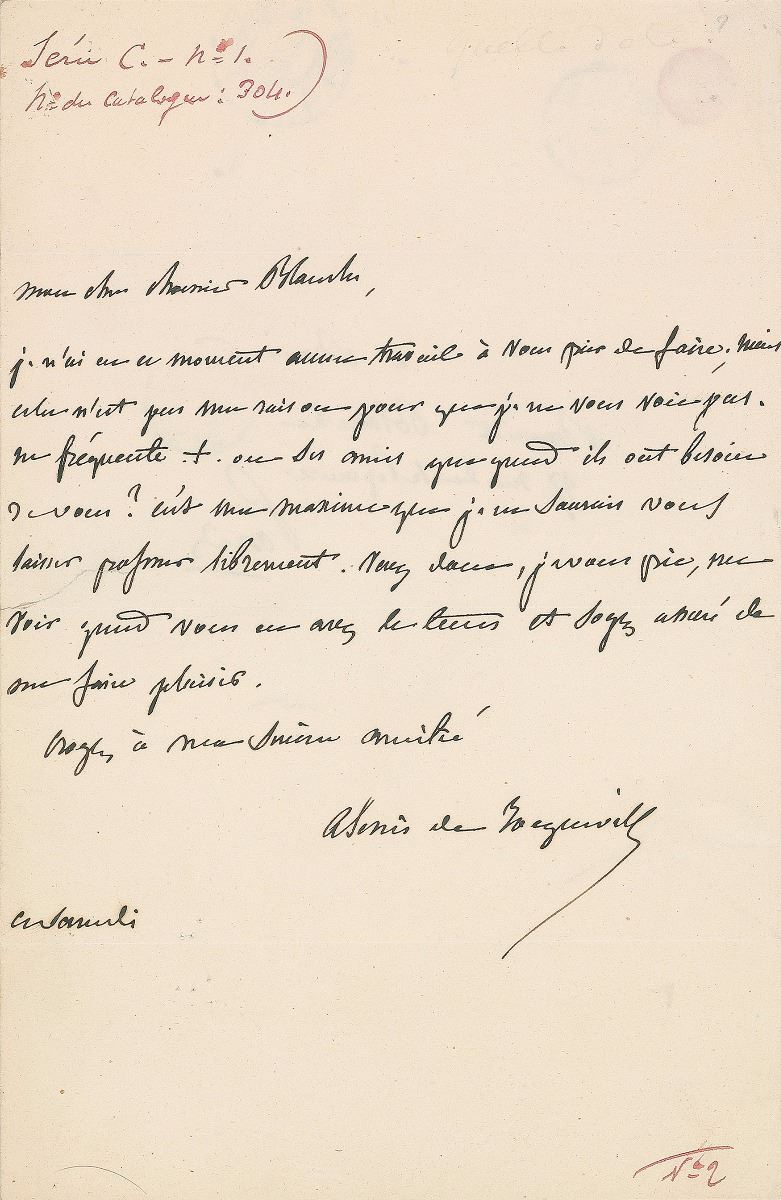 Série C. – nº 1.
Nº du catalogue : 304.
mon cher monsieur Blanche,
je n'ai en ce moment aucun travail à vous prier de faire. mais
cela n'est pas une raison pour que je ne vous voie pas.
ne fréquente-t-on ses amis que quand ils ont besoin
de vous ? c'est une maxime que je ne saurais vous
laisser professer librement. Venez donc, je vous prie, me
voir quand vous en avez le tems et soyez assuré de
me faire plaisir.
Croyez à ma sincère amitié
Alexis de Tocqueville
ce samedi
Nº 2